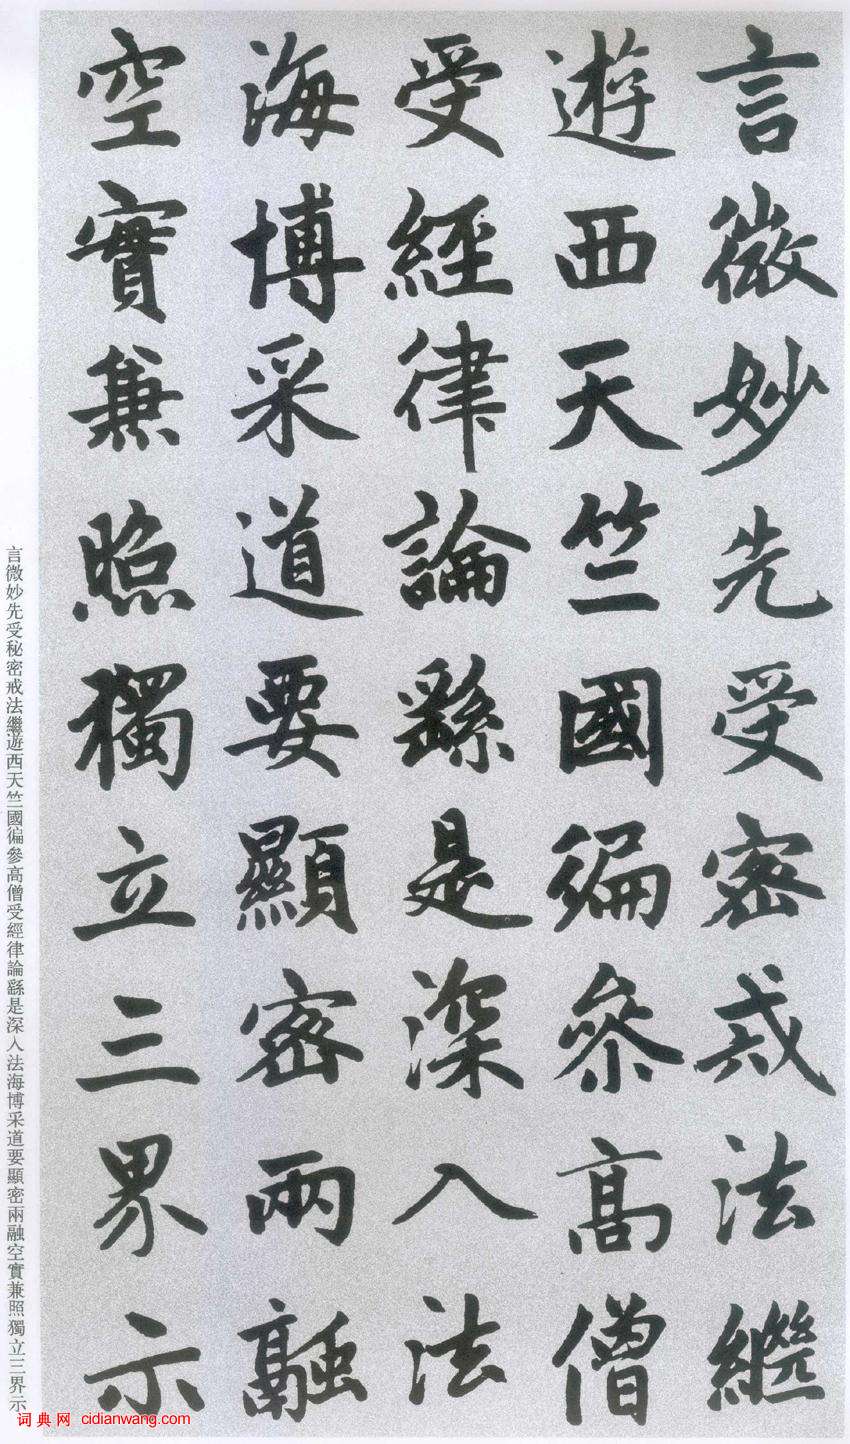 言微妙先受密戒法繼
遊西天竺國徧參高僧
受經律論繇是深入法
海博采道要顯密兩融
空實兼照獨立三界示
言微妙先受秘密戒法繼遊西天竺國徧參高僧受經律論繇是深入法海博采道要顯密兩融空實兼照獨立三界示
词典网 cidianwang.com